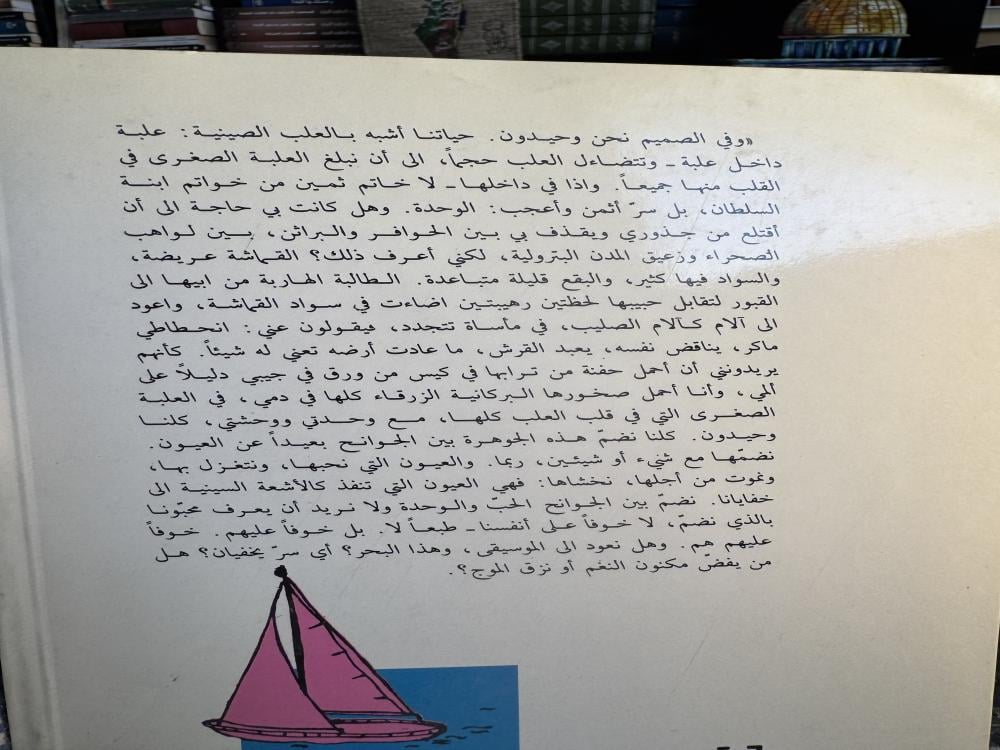 «وفي الصميم نحن وحيدون. حياتنا أشبه بالعلب الصينية: علبة
داخل علبة ـ وتتضاءل العلب حجماً، الى أن نبلغ العلبة الصغرى في
القلب منها جميعاً. واذا في داخلها ـ لا خاتم ثمين من خواتم ابنة
السلطان، بل سرّ أثمن وأعجب: الوحدة. وهل كانت بي حاجة الى أن
أقتلع من جذوري ويقذف بي بين الحوافر والبراثن، بين لواهب
الصحراء وزعيق المدن البترولية، لكني أعرف ذلك؟ القماشة عريضة،
والسواد فيها كثير، والبقع قليلة متباعدة. الطالبة الهاربة من ابيها الى
القبور لتقابل حبيبها لحظتين رهيبتين اضاءت في سواد القماشة، واعود
الى آلام كآلام الصليب، في مأساة تتجدد، فيقولون عني: انحطاطي
ماكر، يناقض نفسه، يعبد القرش، ما عادت أرضه تعني له شيئاً. كأنهم
يريدونني أن أحمل حفنة من ترابها في كيس من ورق في جيبي دليلاً على
ألمي، وأنا أحمل صخورها البركانية الزرقاء كلها في دمي، في العلبة
الصغرى التي في قلب العلب كلها، مع وحدتي ووحشتي، كلنا
وحيدون. كلنا نضمّ هذه الجوهرة بين الجوانح بعيداً عن العيون.
نضمّها مع شيء أو شيئين، ربما. والعيون التي نحبها، ونتغزل بها،
ونموت من أجلها، نخشاها: فهي العيون التي تنفذ كالأشعة السينية الى
خفايانا. نضمّ بين الجوانح الحبّ والوحدة ولا نريد أن يعرف محبّونا
بالذي نضمّ، لا خوفاً على أنفسنا ـ طبعاً لا. بل خوفاً عليهم. خوفاً
عليهم هم. وهل نعود الى الموسيقى، وهذا البحر؟ أي سرّ يخفيان؟ هل
من يفضّ مكنون النغم أو نزق الموج؟.